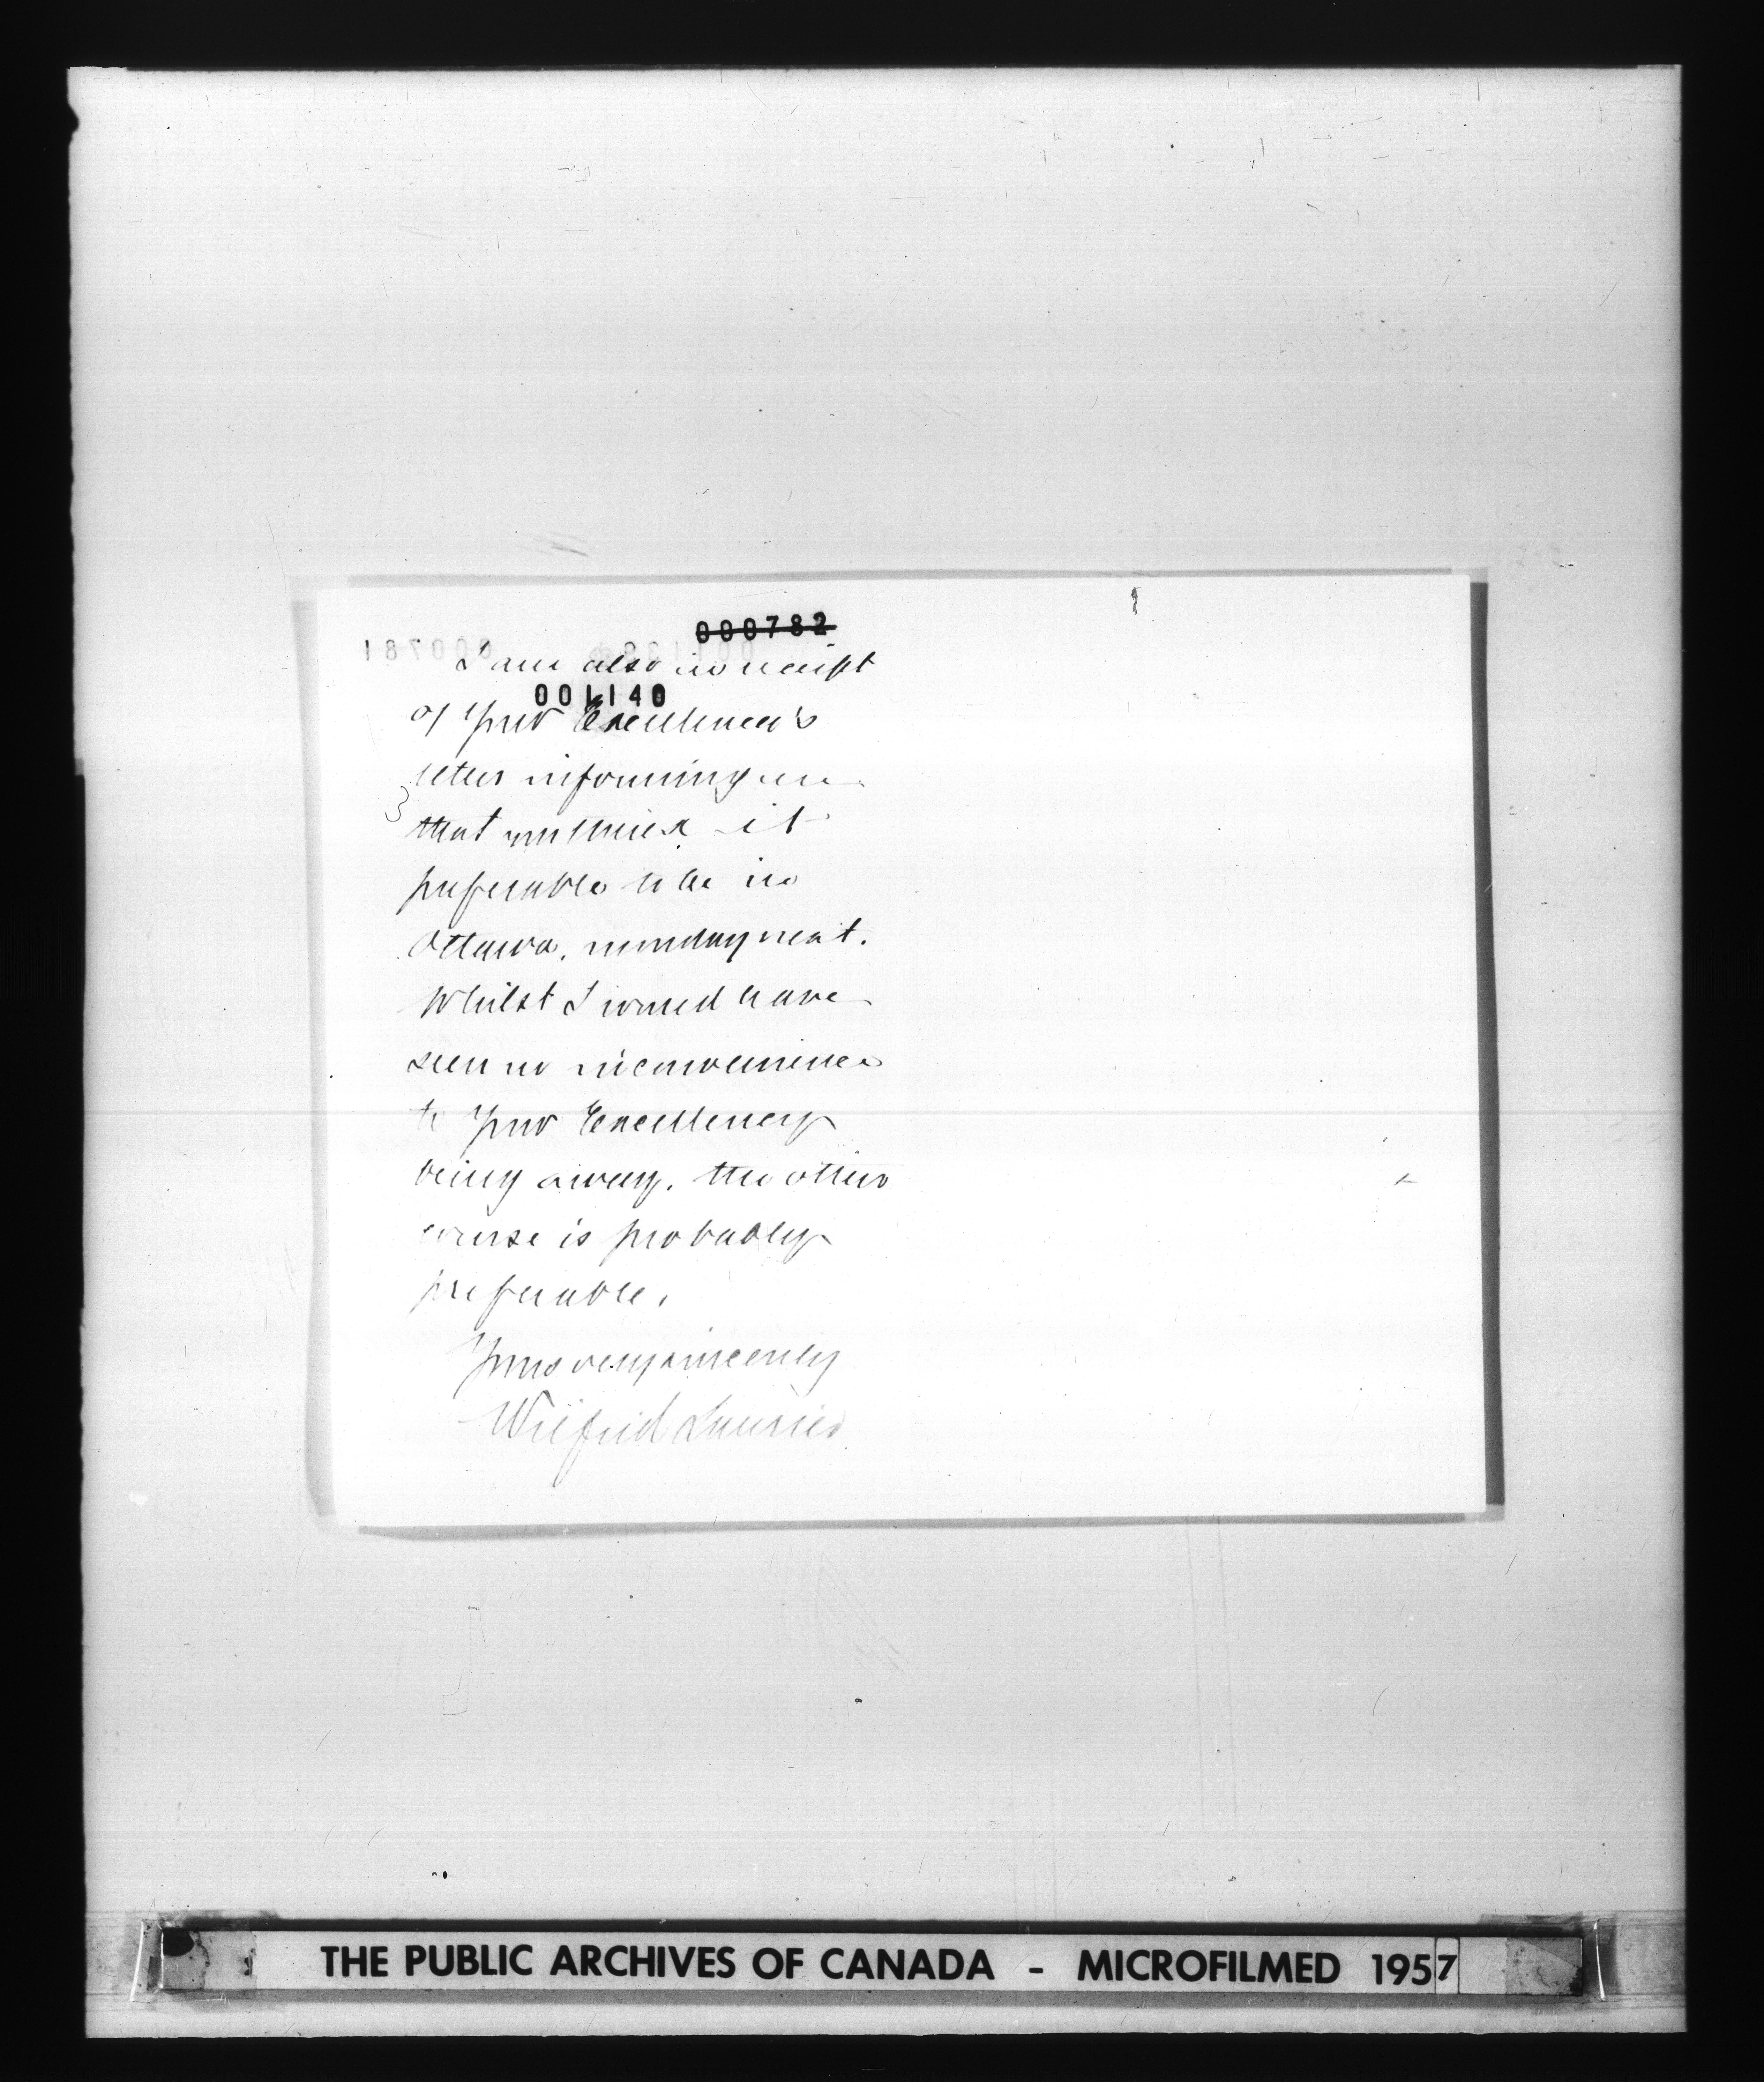 000782
I am also in receipt
001140
of your Excellency's
letter informing me
that you think it
preferable to be in
Ottawa, monday next.
Whilst I would have
seen no inconvenience
to your Excellency
being away, the other
course is probably
preferable.
Yours very sincerely
Wilfrid Laurier
THE PUBLIC ARCHIVES OF CANADA - MICROFILMED 1957